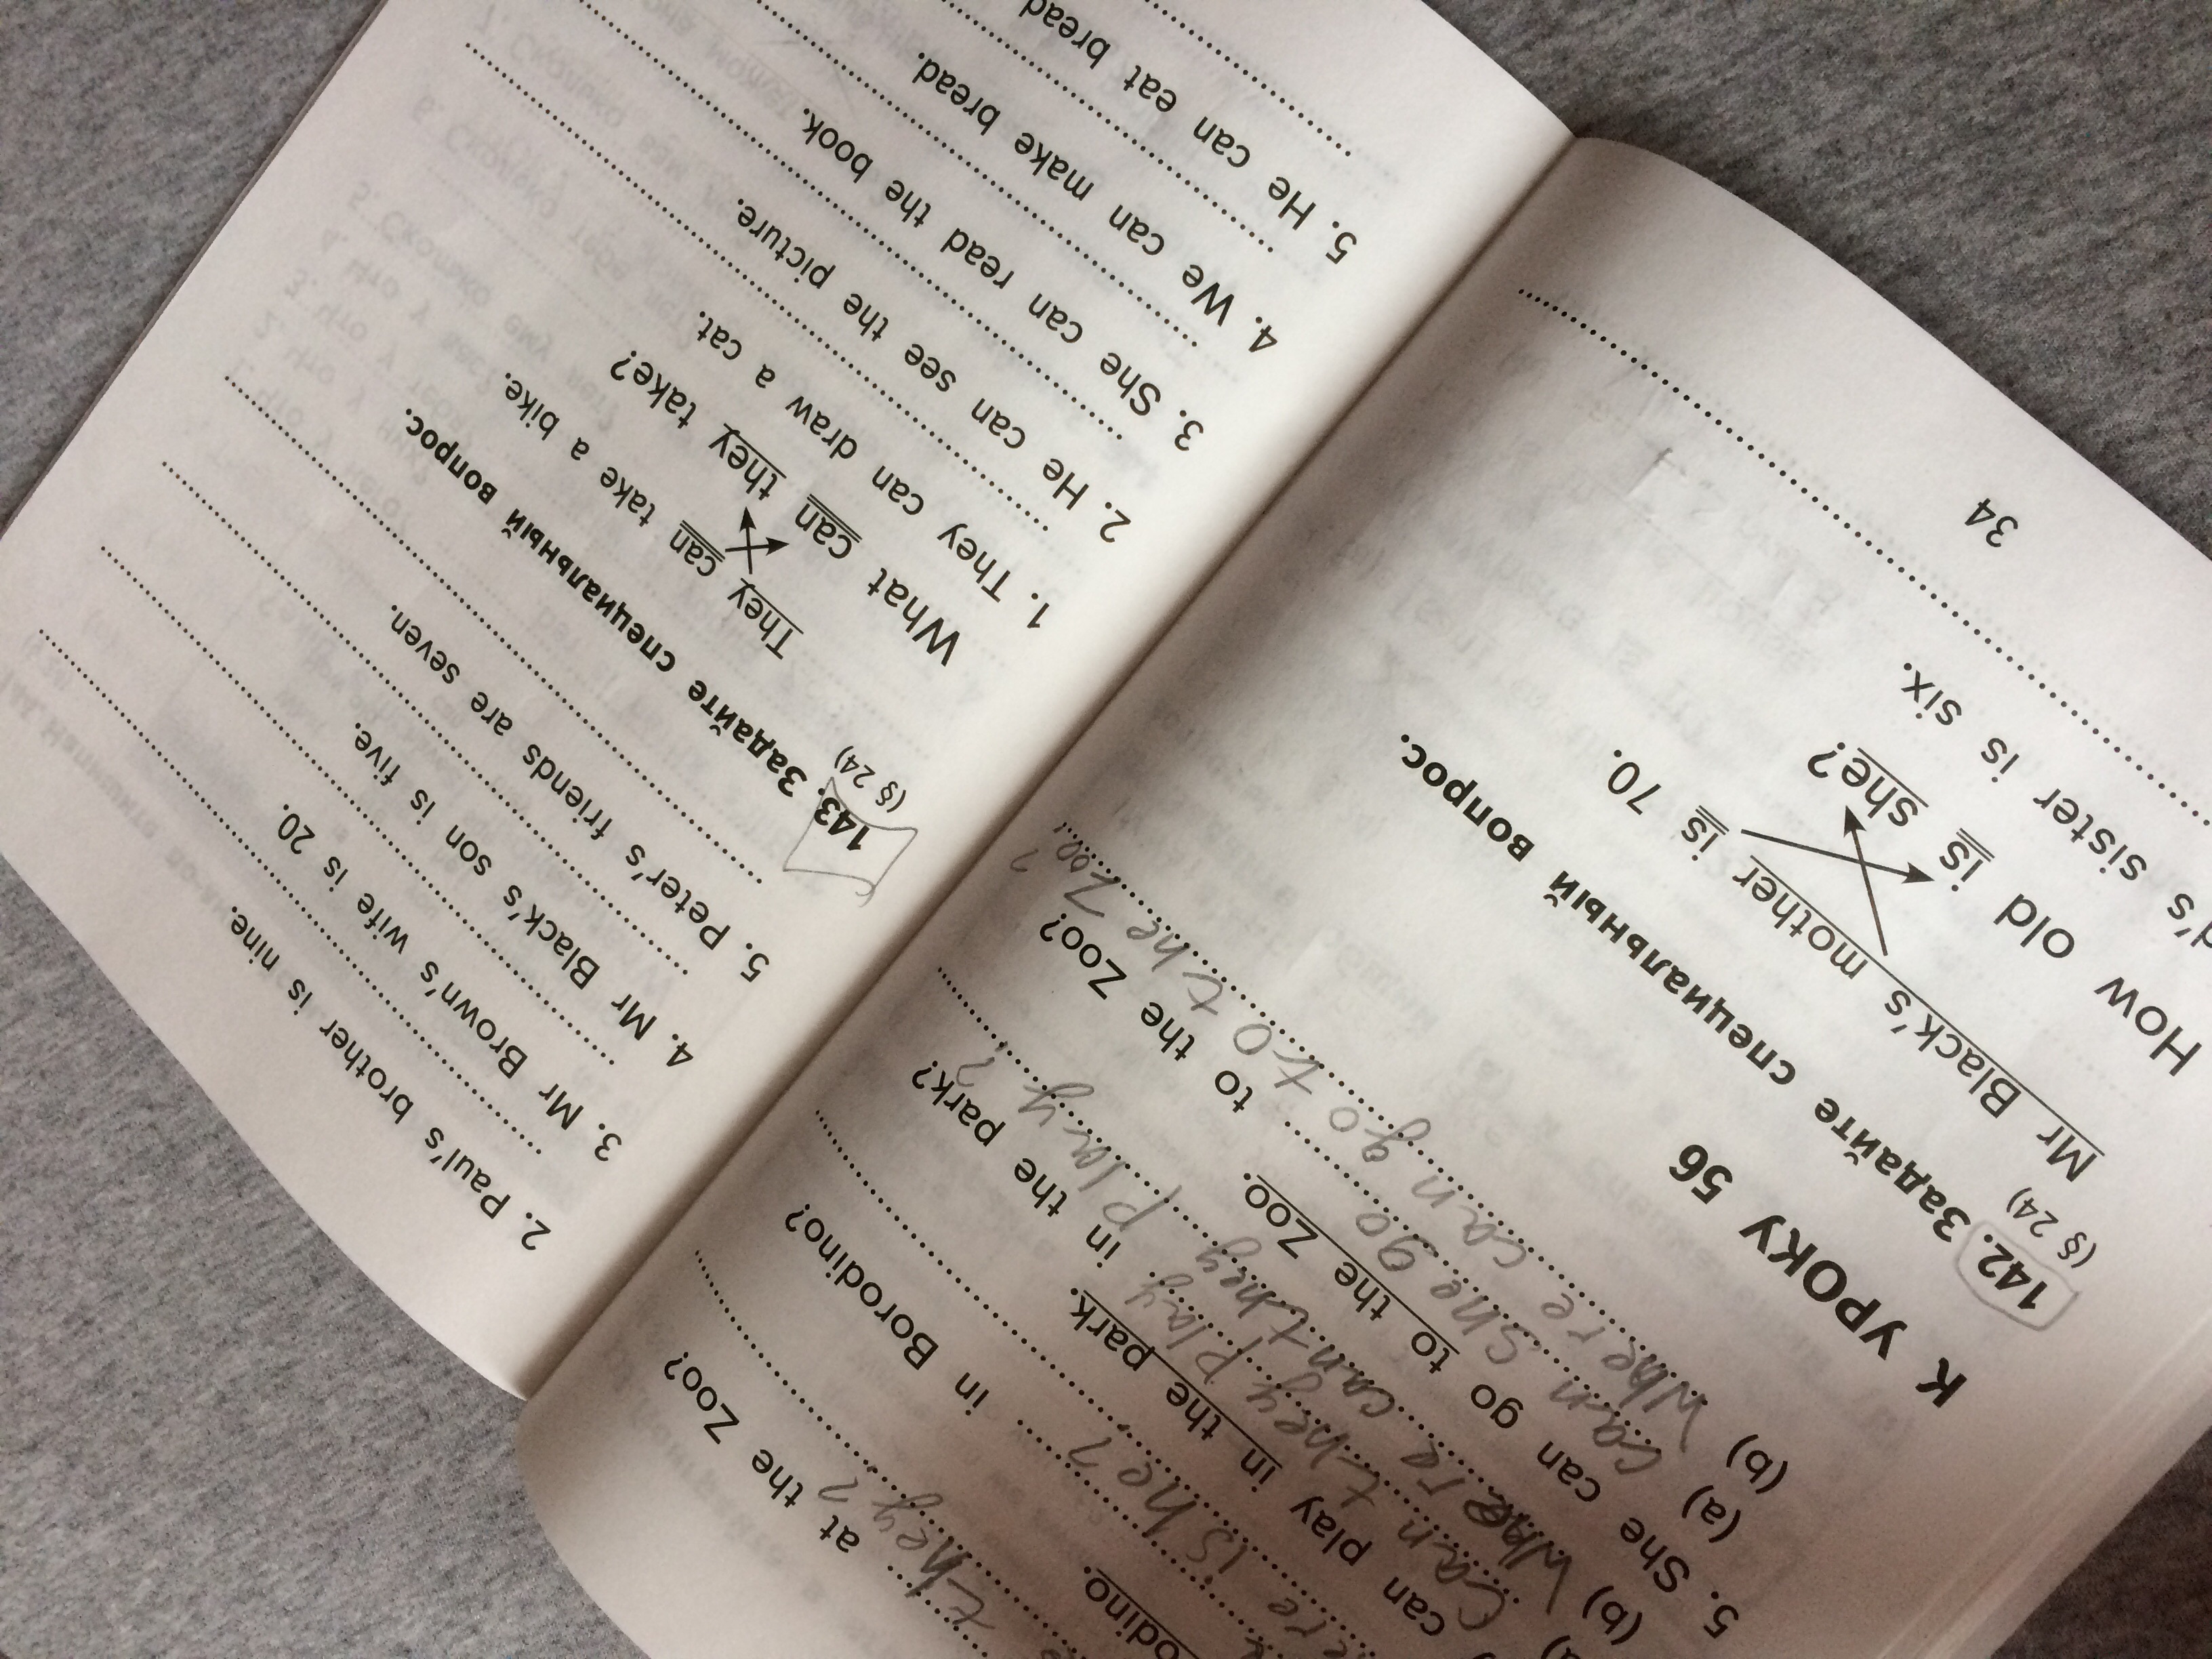 they?
at the Zoo?
odino.
ere is he?
in Borodino?
can play in the park.
Can they play in the park?
(b) Where can they play?
5. She can go to the Zoo.
(a) Can she go to the Zoo?
(b) Where can go to the Zoo?
К УРОКУ 56
142. Задайте специальный вопрос.
(§ 24)
Mr Black's mother is 70.
How old is she?
d's sister is six.
34
2. Paul's brother is nine.
3. Mr Brown's wife is 20.
4. Mr Black's son is five.
5. Peter's friends are seven.
143. Задайте специальный вопрос.
(§ 24)
They can take a bike.
What can they take?
1. They can draw a cat.
2. He can see the picture.
3. She can read the book.
4. We can make bread.
5. He can eat bread